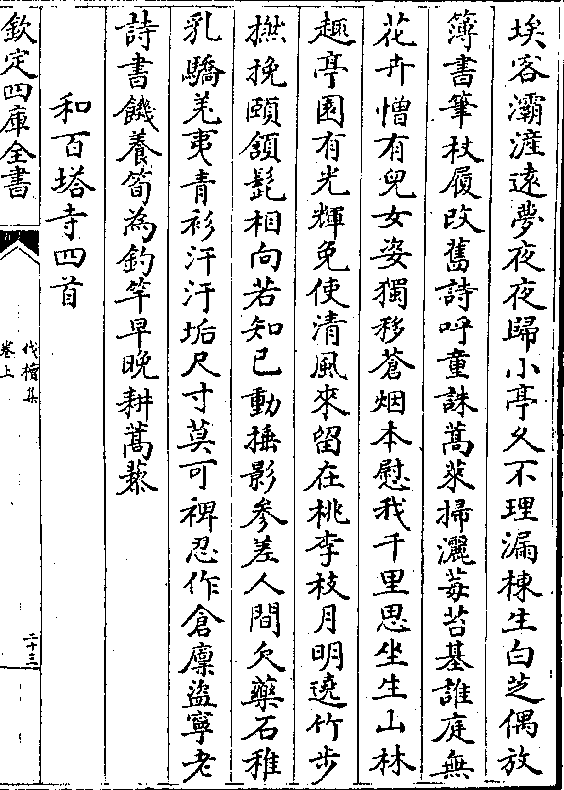 埃客灞滻遠夢夜夜歸小亭久不理漏棟生白芝偶放
簿書筆杖履改舊詩呼童誅蒿萊掃灑莓苔基誰庭無
花卉憎有兒女姿獨移蒼烟本慰我千里思坐生山林
趣亭園有光輝免使清風來留在桃李枝月明遶竹步
撫挽頤頷髭相向若知已動揺影參差人間欠藥石稚
乳驕羌夷青衫汗汙垢尺寸莫可裨忍作倉廪盜寧老
詩書饑養筍為釣竿早晚耕蒿藜
和百塔寺四首
欽定四庫全書
伐檀集
卷上
二十三